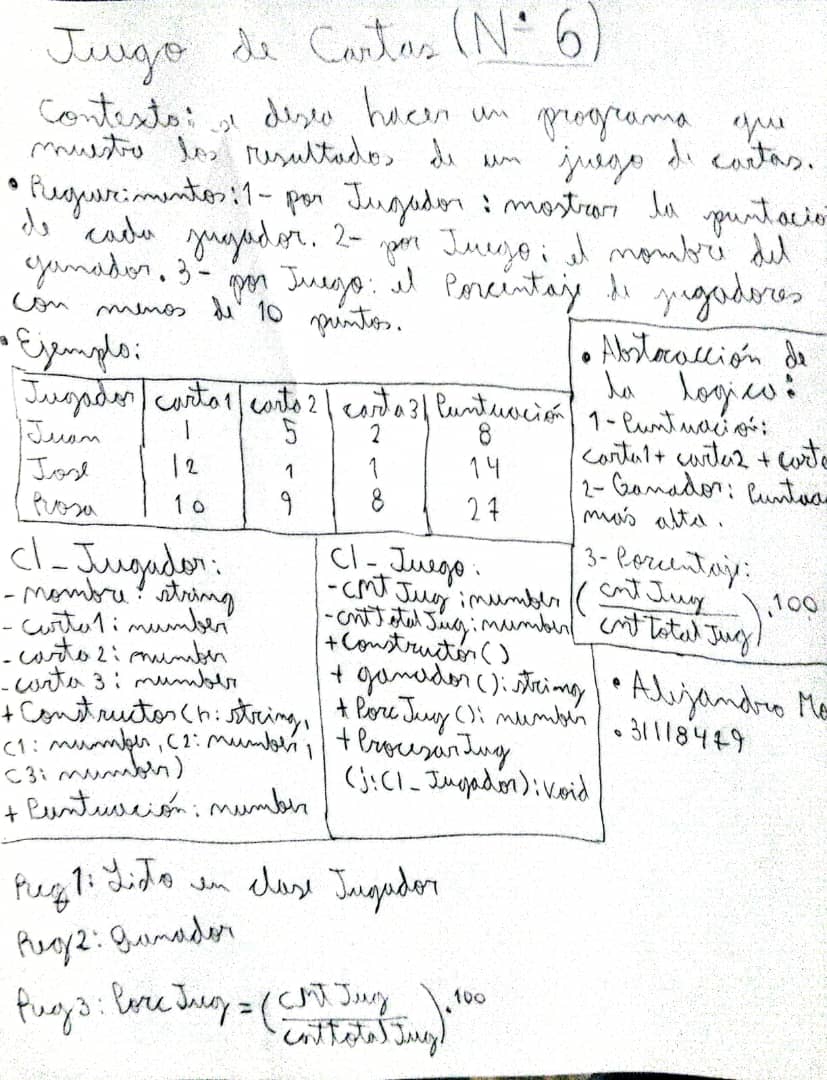 Juego de Cartas (N° 6)
Contexto: se desea hacer un programa que
muestre los resultados de un juego de cartas.
• Requerimentos: 1- por Jugador: mostrar la puntacio
de cada jugador. 2- por Juego: el nombre del
ganador. 3- por Juego: el Porcentaje de jugadores
con menos de 10 puntos.
• Ejemplo:
Jugador carta1 carta 2 carta 3 Puntuación
Juan 1 5 2 8
Jose 12 1 1 14
Rosa 10 9 8 27
• Abstracción de
la logica:
1- Puntuación:
carta1 + carta2 + carta
2- Ganador: Puntuac
más alta.
3- Porcentaje:
(cntJug / cnt total Jug) . 100
Cl_Jugador:
- nombre: string
- carta1: number
- carta 2: number
- carta 3: number
+ Constructor(n: string,
c1: number, c2: number,
c3: number)
+ Puntuación: number
Cl_Juego:
- cnt Jug: number
- cntTotal Jug: number
+ Constructor()
+ ganador(): string
+ Porc Jug(): number
+ Procesar Jug
(j: Cl_Jugador): void
• Alejandro Me
• 31118479
Req1: Listo en clase Jugador
Req2: ganador
Req3: Porc Jug = (cnt Jug / cnt total Jug) . 100